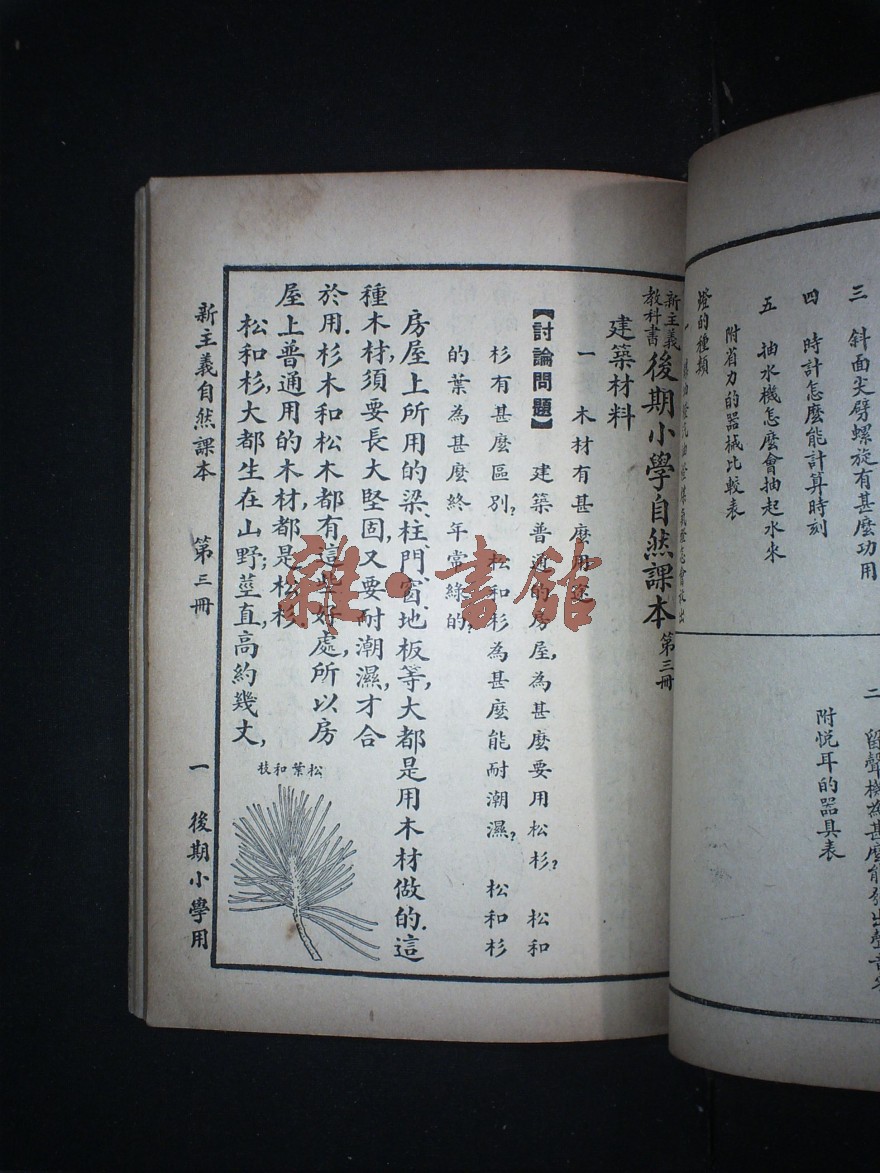 三 斜面尖劈螺旋有甚麼功用
四 時計怎麼能計算時刻
五 抽水機怎麼會抽起水來
附省力的器械比較表
燈的種類
二 留聲機為甚麼能發出聲音來
附悅耳的器具表
新主義
教科書
後期小學自然課本 第三冊
建築材料
一 木材有甚麼用途
【討論問題】 建築普通的房屋,為甚麼要用松杉? 松和
杉有甚麼區別? 松和杉為甚麼能耐潮濕? 松和杉
的葉為甚麼終年常綠的?
房屋上所用的梁、柱、門、窗、地板等,大都是用木材做的.這
種木材須要長大堅固,又要耐潮濕,才合
於用.杉木和松木都有這些好處,所以房
屋上普通用的木材,都是松杉.
松和杉,大都生在山野;莖直,高約幾丈,
松葉和枝
新主義自然課本 第三冊 一 後期小學用
雜·書館